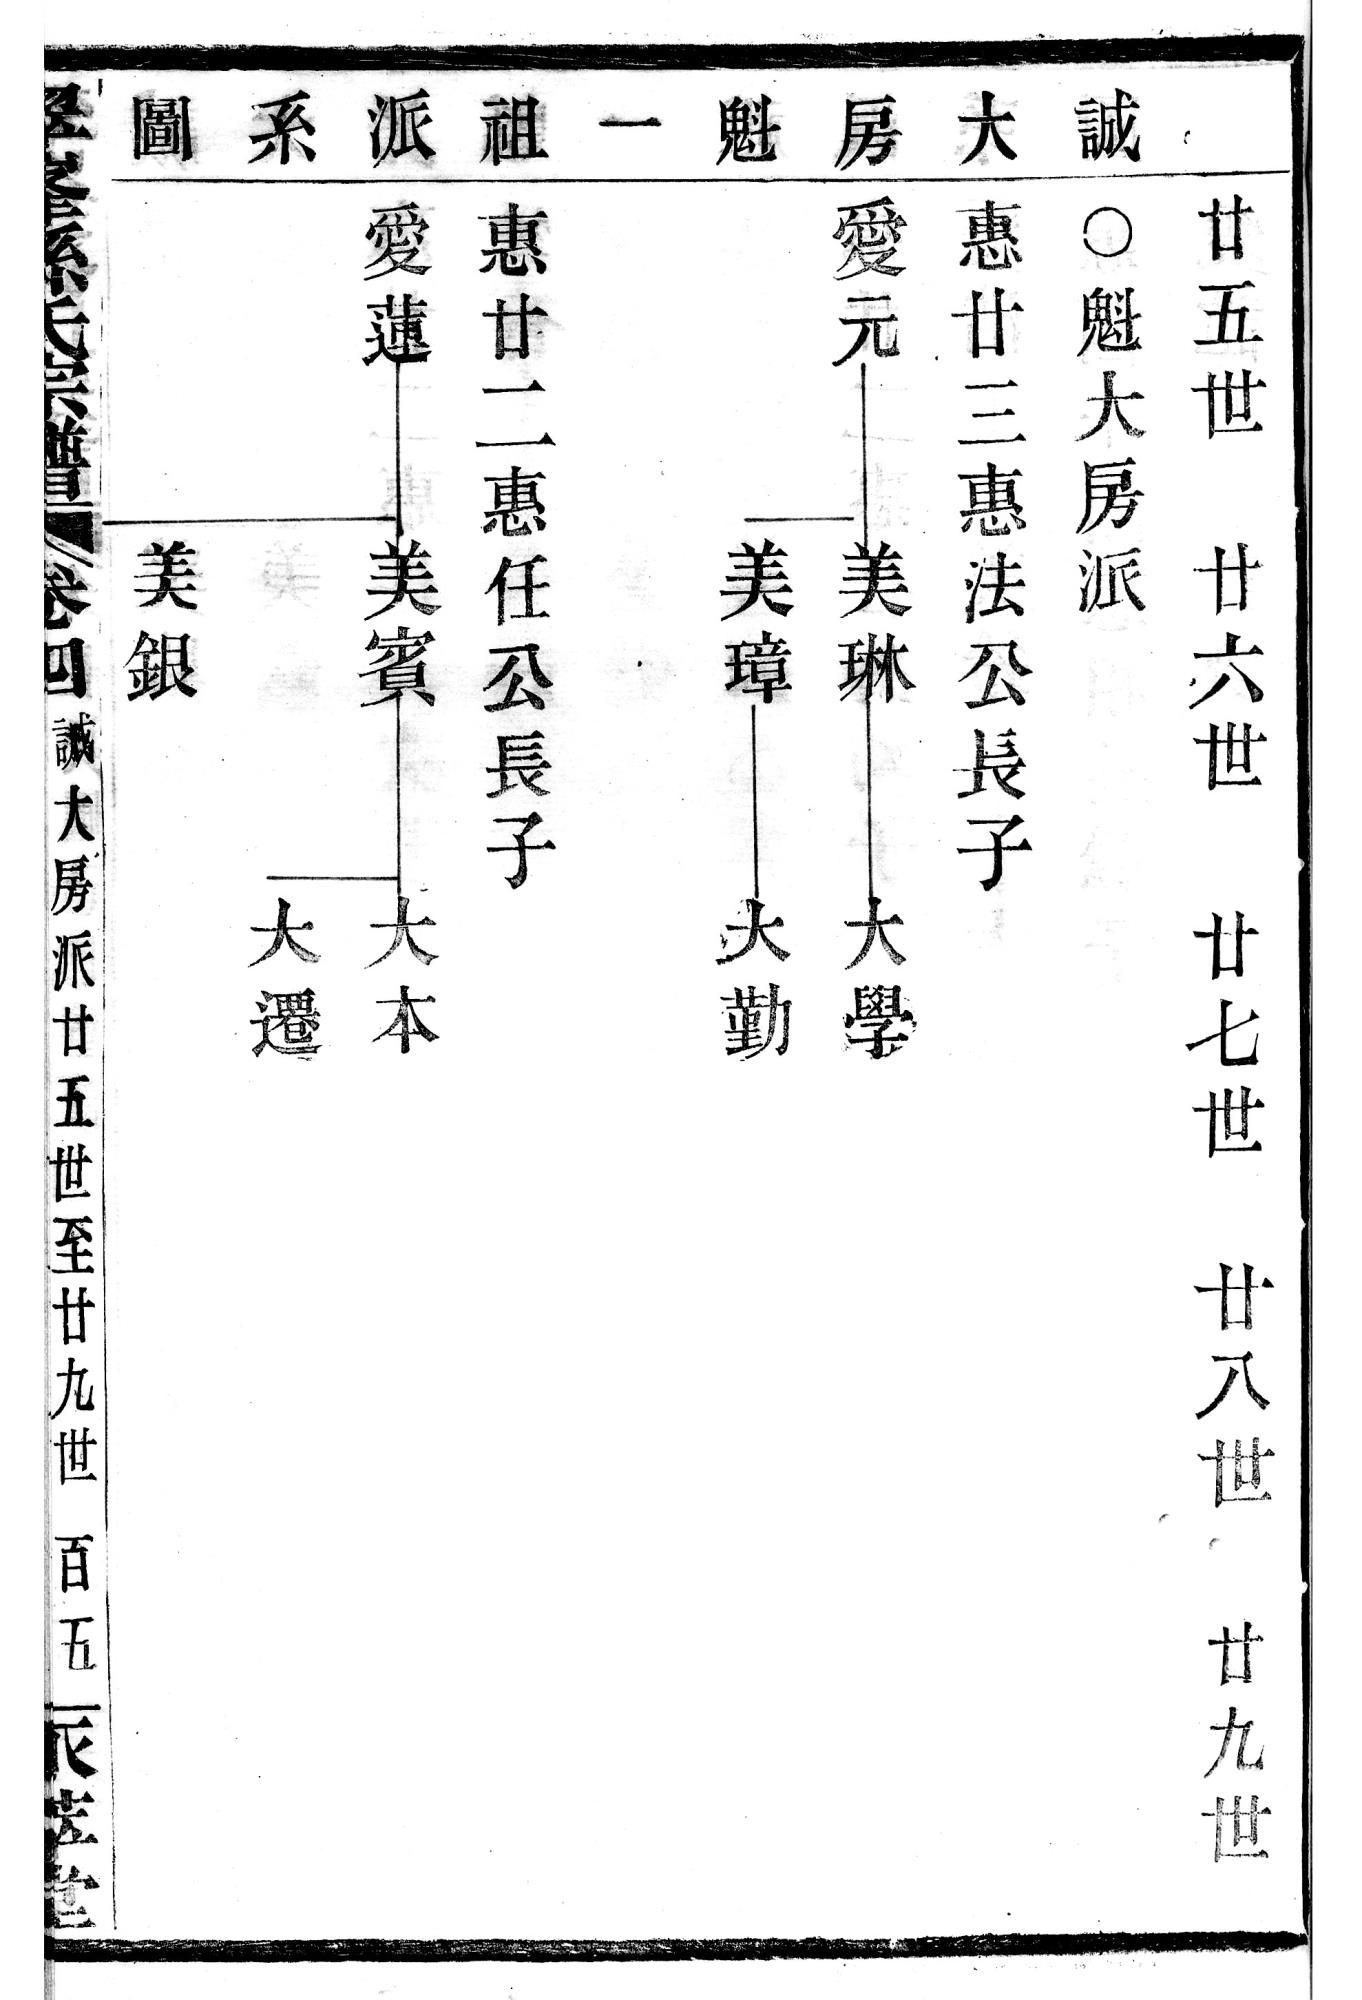 誠大房魁一祖派系圖
廿五世 廿六世 廿七世 廿八世 廿九世
○魁大房派
惠廿三惠法公長子
愛元 美琳 大學
美璋 大勤
惠廿二惠任公長子
愛蓮 美賓 大本
大遷
美銀
孫氏宗譜 卷四 誠大房派廿五世至廿九世 百五 堂